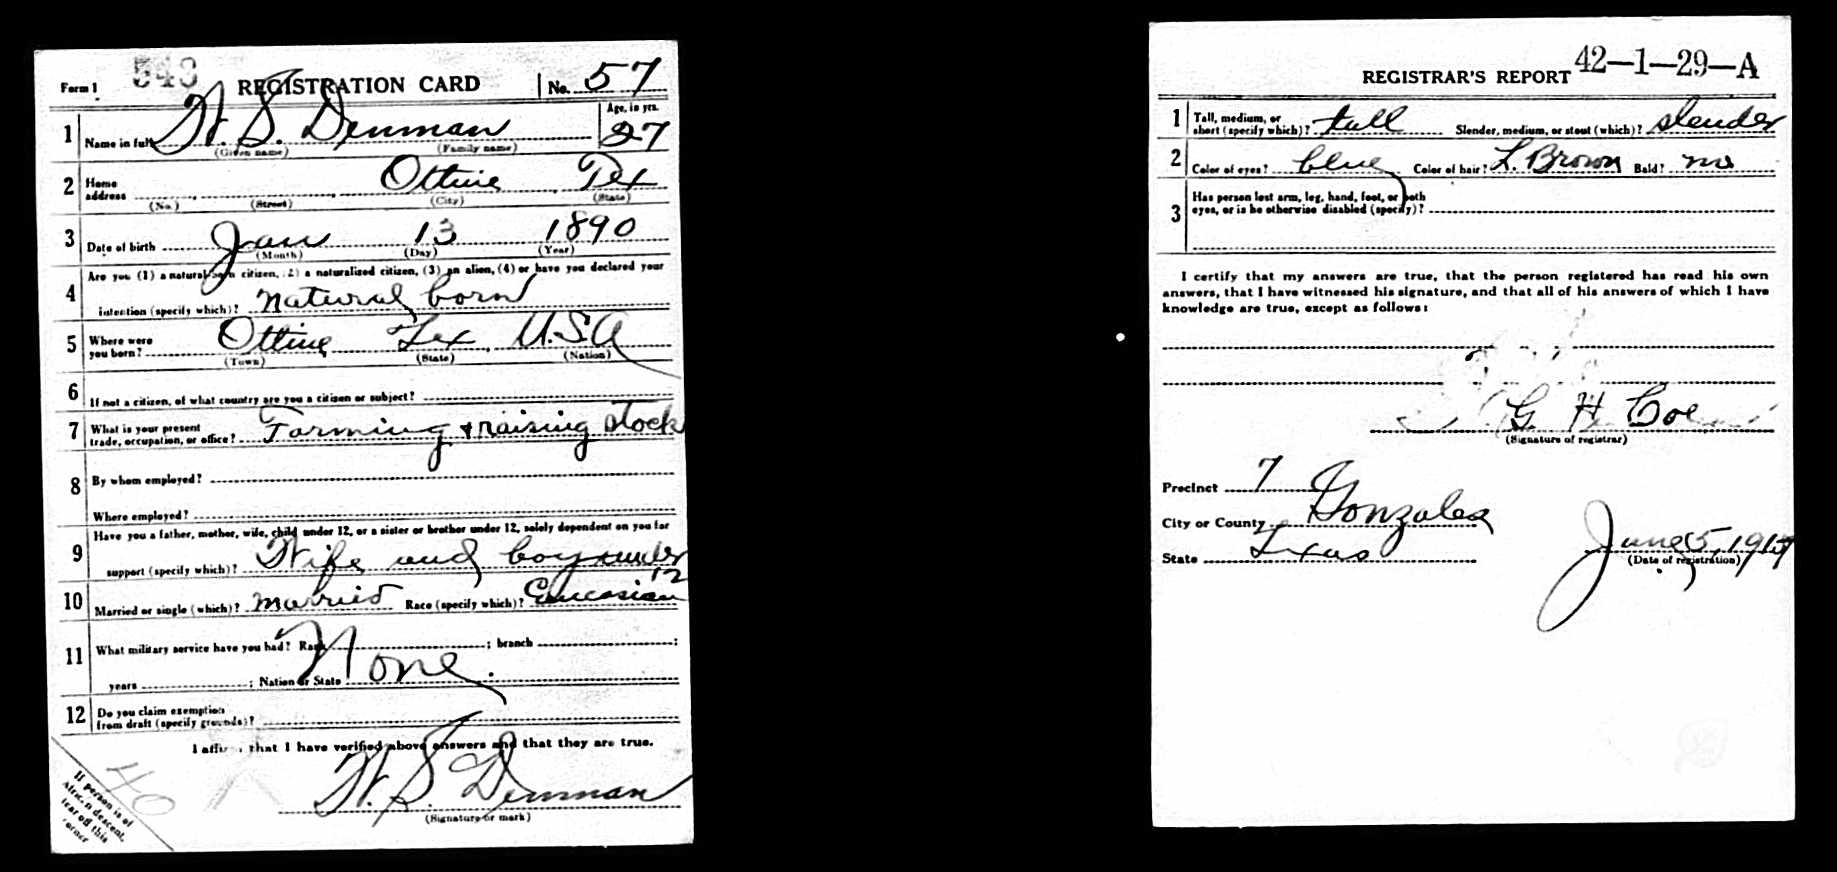 Form 1 543 REGISTRATION CARD No. 57
1 Name in full W. S. Denman Age, in yrs. 27
(Given name) (Family name)
2 Home address Ottine Tex
(No.) (Street) (City) (State)
3 Date of birth Jan 13 1890
(Month) (Day) (Year)
Are you (1) a natural born citizen, (2) a naturalized citizen, (3) an alien, (4) or have you declared your
4 intention (specify which)? natural born
5 Where were you born? Ottine Tex U.S.A
(Town) (State) (Nation)
6 If not a citizen, of what country are you a citizen or subject?
7 What is your present trade, occupation, or office? Farming + raising stock
8 By whom employed?
Where employed?
Have you a father, mother, wife, child under 12, or a sister or brother under 12, solely dependent on you for
9 support (specify which)? Wife and boy under 12
10 Married or single (which)? married Race (specify which)? Caucasian
11 What military service have you had? Rank ; branch ;
years ; Nation or State None.
12 Do you claim exemption from draft (specify grounds)?
I affirm that I have verified above answers and that they are true.
W. S. Denman
(Signature or mark)
If person is of
African descent,
tear off this
corner
40
REGISTRAR'S REPORT 42-1-29-A
1 Tall, medium, or short (specify which)? tall Slender, medium, or stout (which)? slender
2 Color of eyes? blue Color of hair? L. Brown Bald? no
3 Has person lost arm, leg, hand, foot, or both eyes, or is he otherwise disabled (specify)?
I certify that my answers are true, that the person registered has read his own
answers, that I have witnessed his signature, and that all of his answers of which I have
knowledge are true, except as follows:
G. H. Coe
(Signature of registrar)
Precinct 7
City or County Gonzales
State Texas June 5, 1917
(Date of registration)